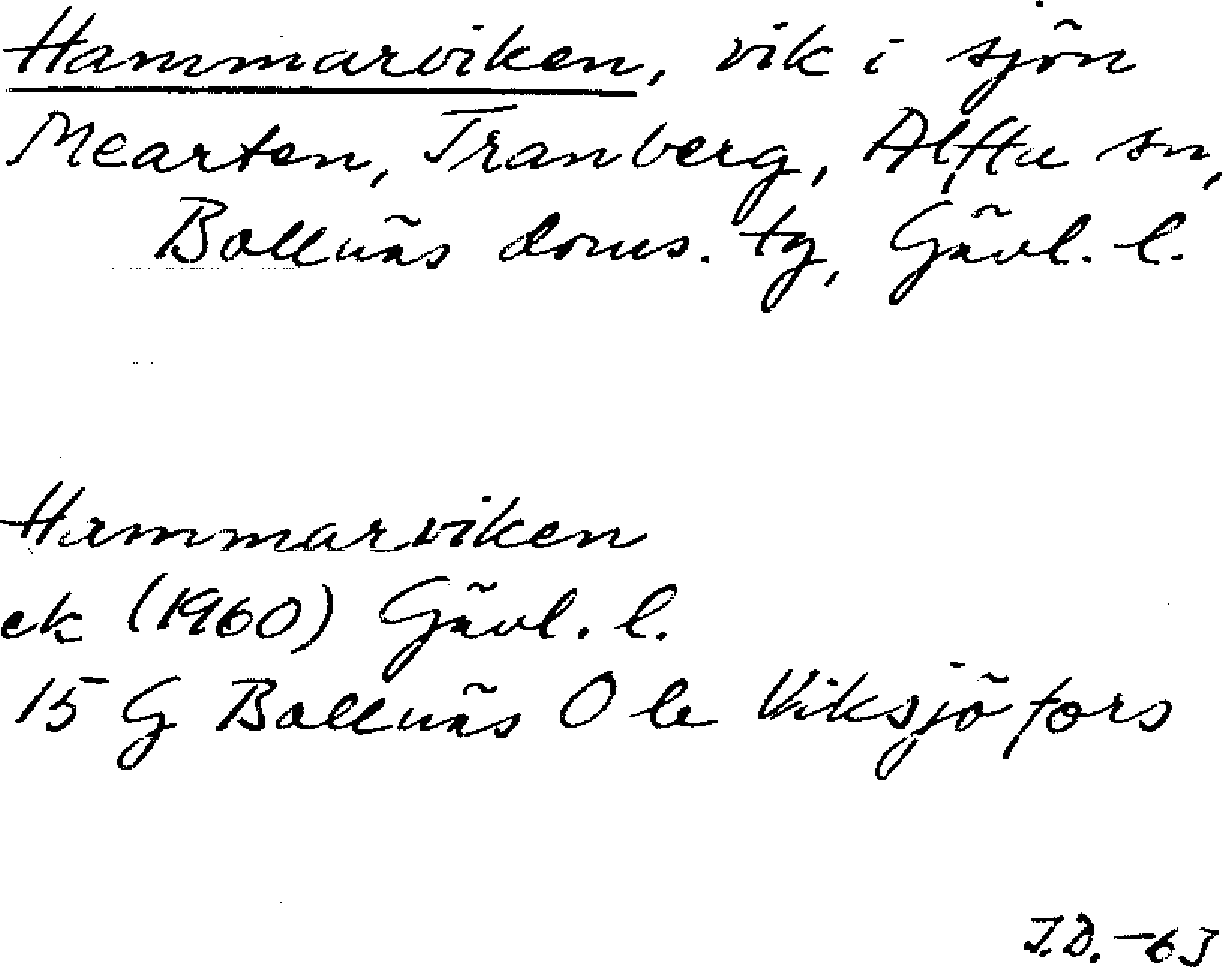 Hammarviken, vik i sjön
Mearten, Tranberg, Alfta sn,
Bollnäs doms. tg, Gävl. l.
Hammarviken
ek (1960) Gävl. l.
15 G Bollnäs O le Viksjöfors
J.D. -63